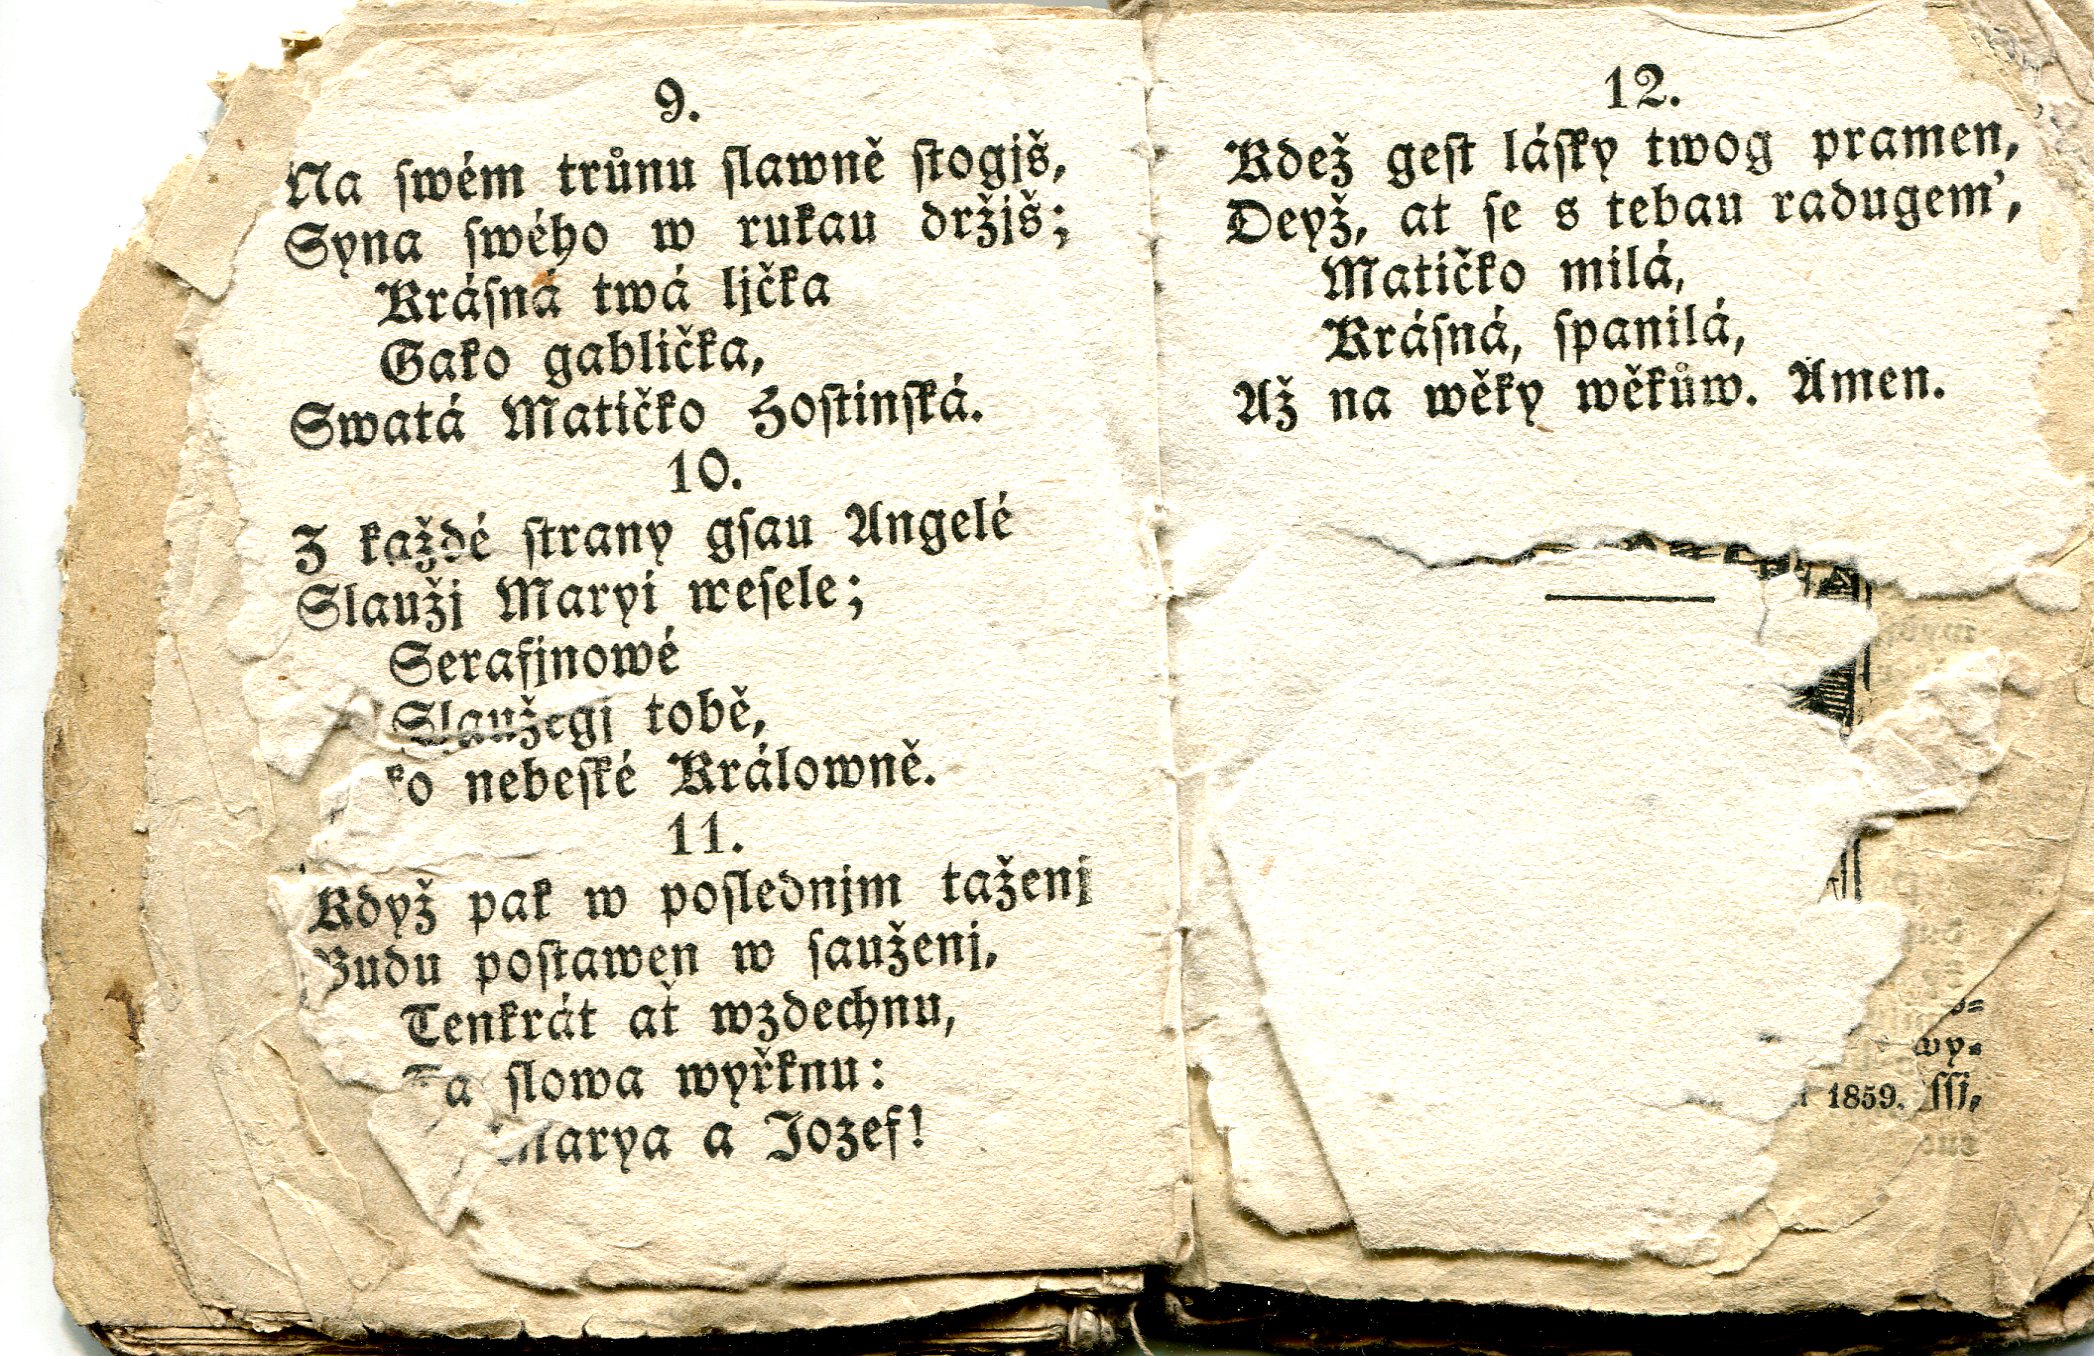 9.
Na swém trůnu slawně stogjš,
Syna swého w rukau držjš;
Krásná twá ljčka
Gako gablička,
Swatá Matičko Hostinská.
10.
Z každé strany gsau Angelé
Slaužj Maryi wesele;
Serafjnowé
Slaužegj tobě,
nebeské Králowně.
11.
Když pak w poslednjm taženj
Budu postawen w sauženj,
Tenkrát ať wzdechnu,
Ta slowa wyřknu:
Marya a Jozef!
12.
Kdež gest lásky twog pramen,
Deyž, at se s tebau radugem',
Matičko milá,
Krásná, spanilá,
Až na wěky wěkůw. Amen.
wy-
1859.